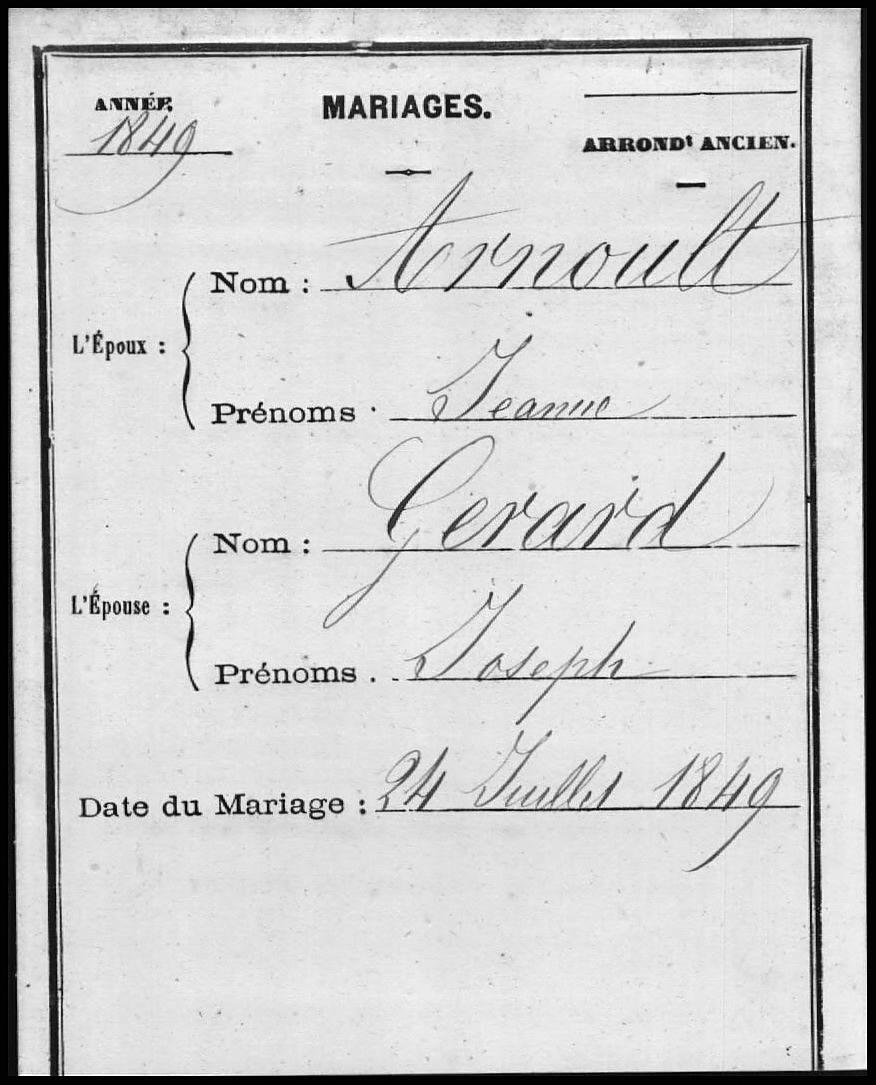 ANNÉE
MARIAGES.
1849
ARRONDt ANCIEN.
L'Époux :
Nom : Arnoult
Prénoms : Jeanne
L'Épouse :
Nom : Gerard
Prénoms . Joseph
Date du Mariage : 24 Juillet 1849